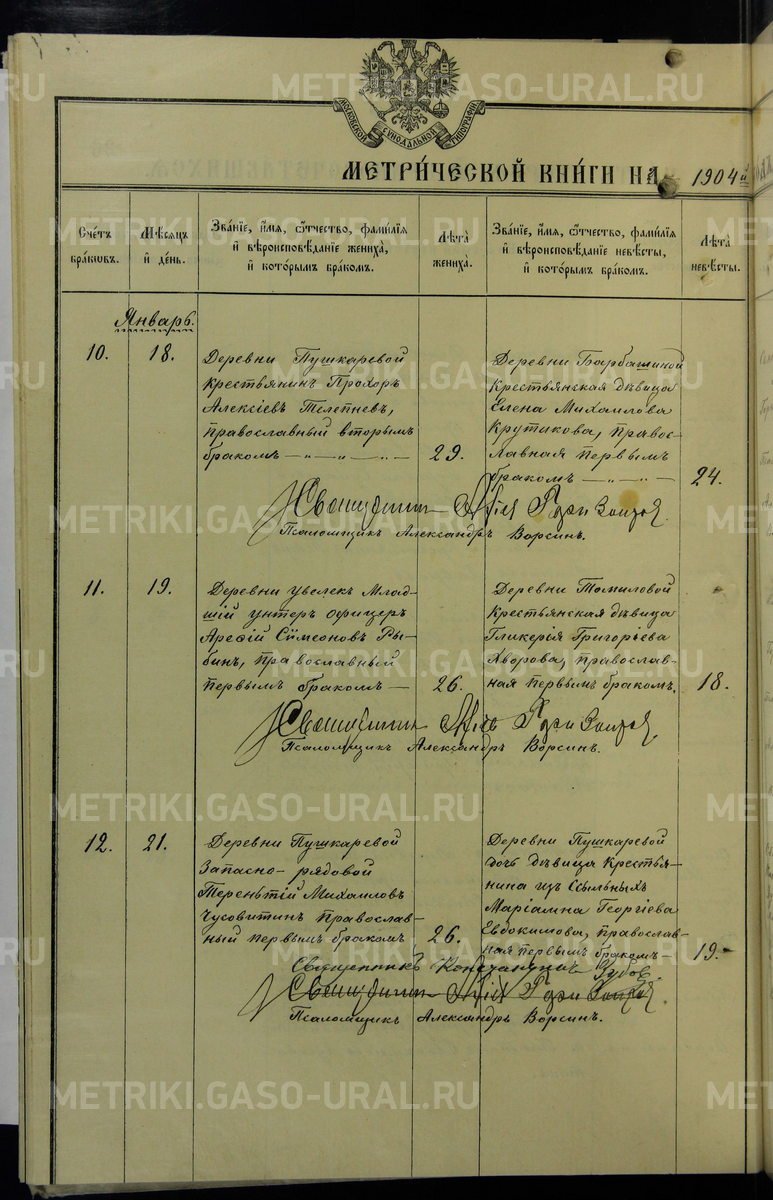 МОСКОВСКОЙ СѴНОДАЛЬНОЙ ТИПОГРАФІИ
МЕТРИ́ЧЕСКОЙ КНИ́ГИ НА 1904й
Сче́тъ бра́кѡвъ.
Мѣ́сяцъ й де́нь.
Зва́нїе, и́мя, ѻ҆́тчество, фами́лїя й вѣроисповѣ́данїе жениха̀, й кото́рымъ бра́комъ.
Лѣ́та жениха̀.
Зва́нїе, и́мя, ѻ҆́тчество, фами́лїя й вѣроисповѣ́данїе невѣ́сты, й кото́рымъ бра́комъ.
Лѣ́та невѣ́сты.
Январь.
10. 18.
Деревни Пушкаревой
крестьянинъ Прохоръ
Алексіевъ Телепневъ,
православный вторымъ
бракомъ — „ — „ — „ —
29.
Деревни Барбашиной
крестьянская дѣвица
Елена Михаилова
Крутикова, правос-
лавная первымъ
бракомъ — „ — „ —
24.
Священникъ
Псаломщикъ Александръ Ворсинъ.
11. 19.
Деревни Увелек Млад-
шій унтеръ офицеръ
Арефій Симеоновъ Ры-
бинъ, православный
первымъ бракомъ —
26.
Деревни Томиловой
крестьянская дѣвица
Гликерія Григоріева
Хворова, православ-
ная первымъ бракомъ.
18.
Священникъ
Псаломщикъ Александръ Ворсинъ.
12. 21.
Деревни Пушкаревой
Запасно-рядовой
Терентій Михаиловъ
Чусовитинъ православ-
ный первымъ бракомъ
26.
Деревни Пушкаревой
дочь дѣвица Крестья-
нина изъ ссыльныхъ
Маріамна Георгіева
Евдокимова, православ-
ная первымъ бракомъ —
19.
Священникъ Константинъ Зубов.
Священникъ
Псаломщикъ Александръ Ворсинъ.
METRIKI.GASO-URAL.RU